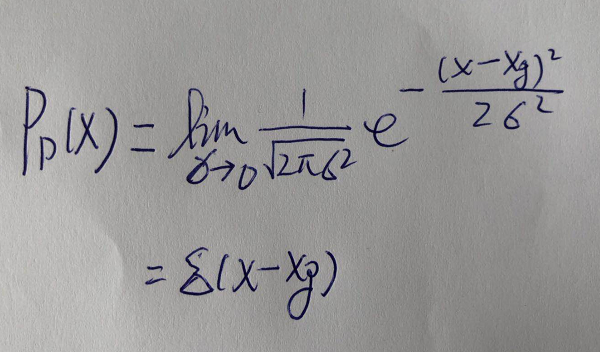 P_D(x) = lim_{σ→0} \frac{1}{\sqrt{2πσ^2}} e^{-\frac{(x-x_g)^2}{2σ^2}}
= δ(x-x_g)